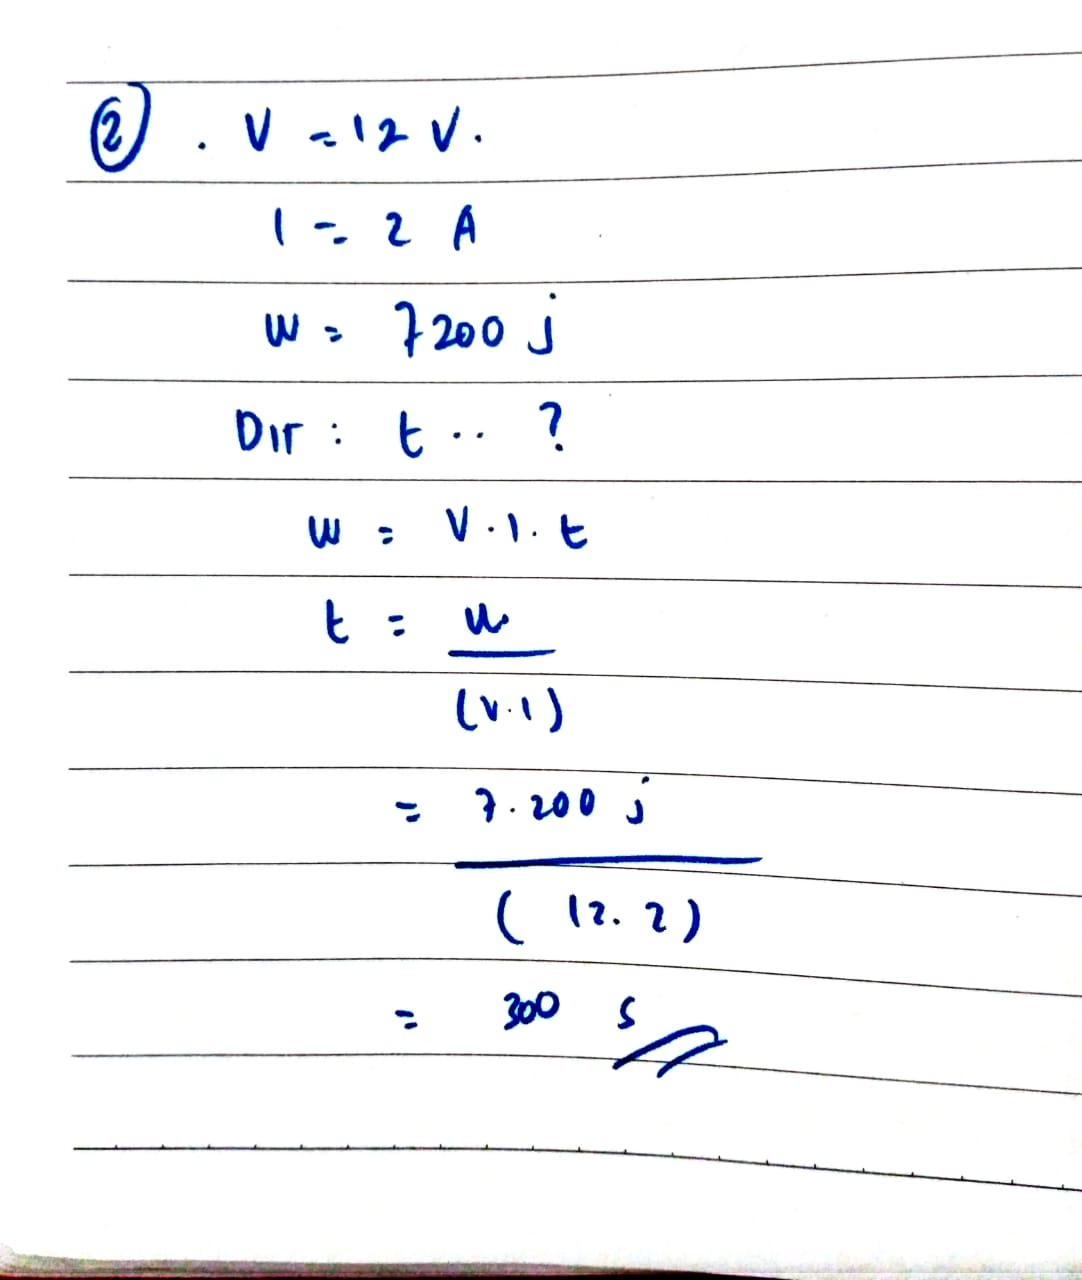 ② . V = 12 V.
I = 2 A
W = 7200 j
Dit : t .. ?
W = V . I . t
t = W
(V . I)
= 7.200 j
( 12. 2 )
= 300 s